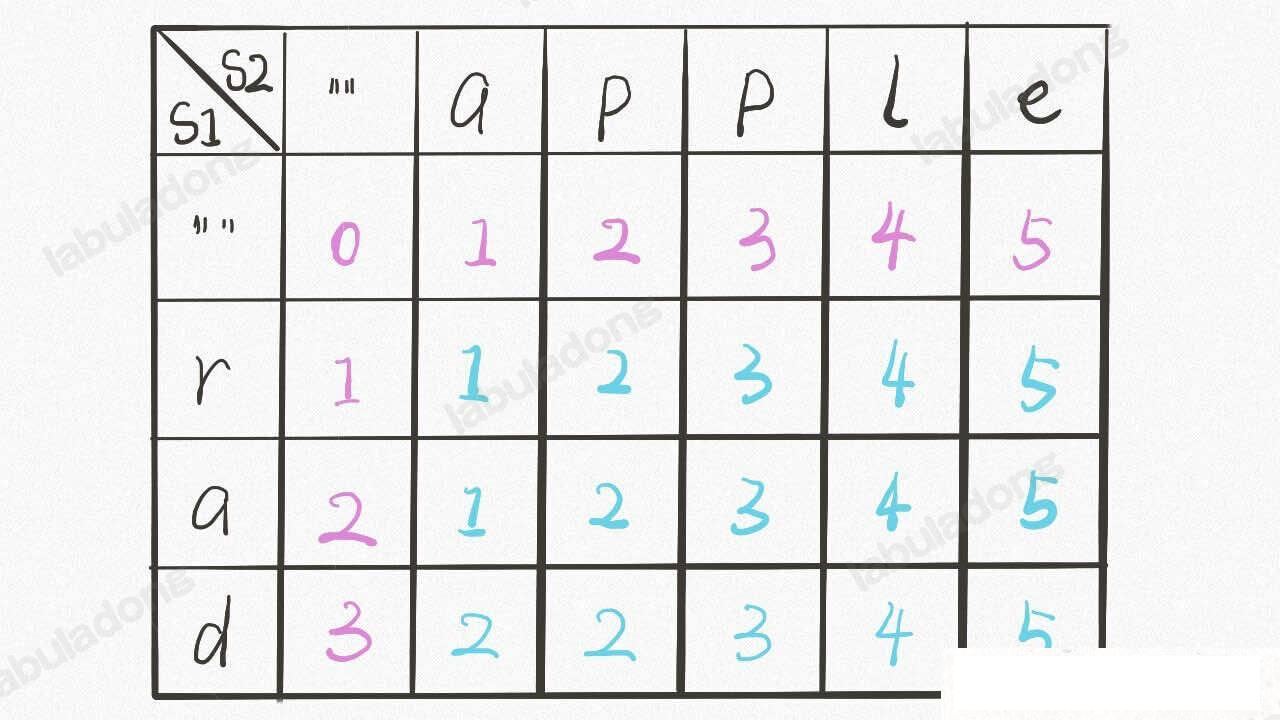 S2
S1 "" a p p l e
"" 0 1 2 3 4 5
r 1 1 2 3 4 5
a 2 1 2 3 4 5
d 3 2 2 3 4 5
labuladong
labuladong
labuladong
labuladong
labuladong